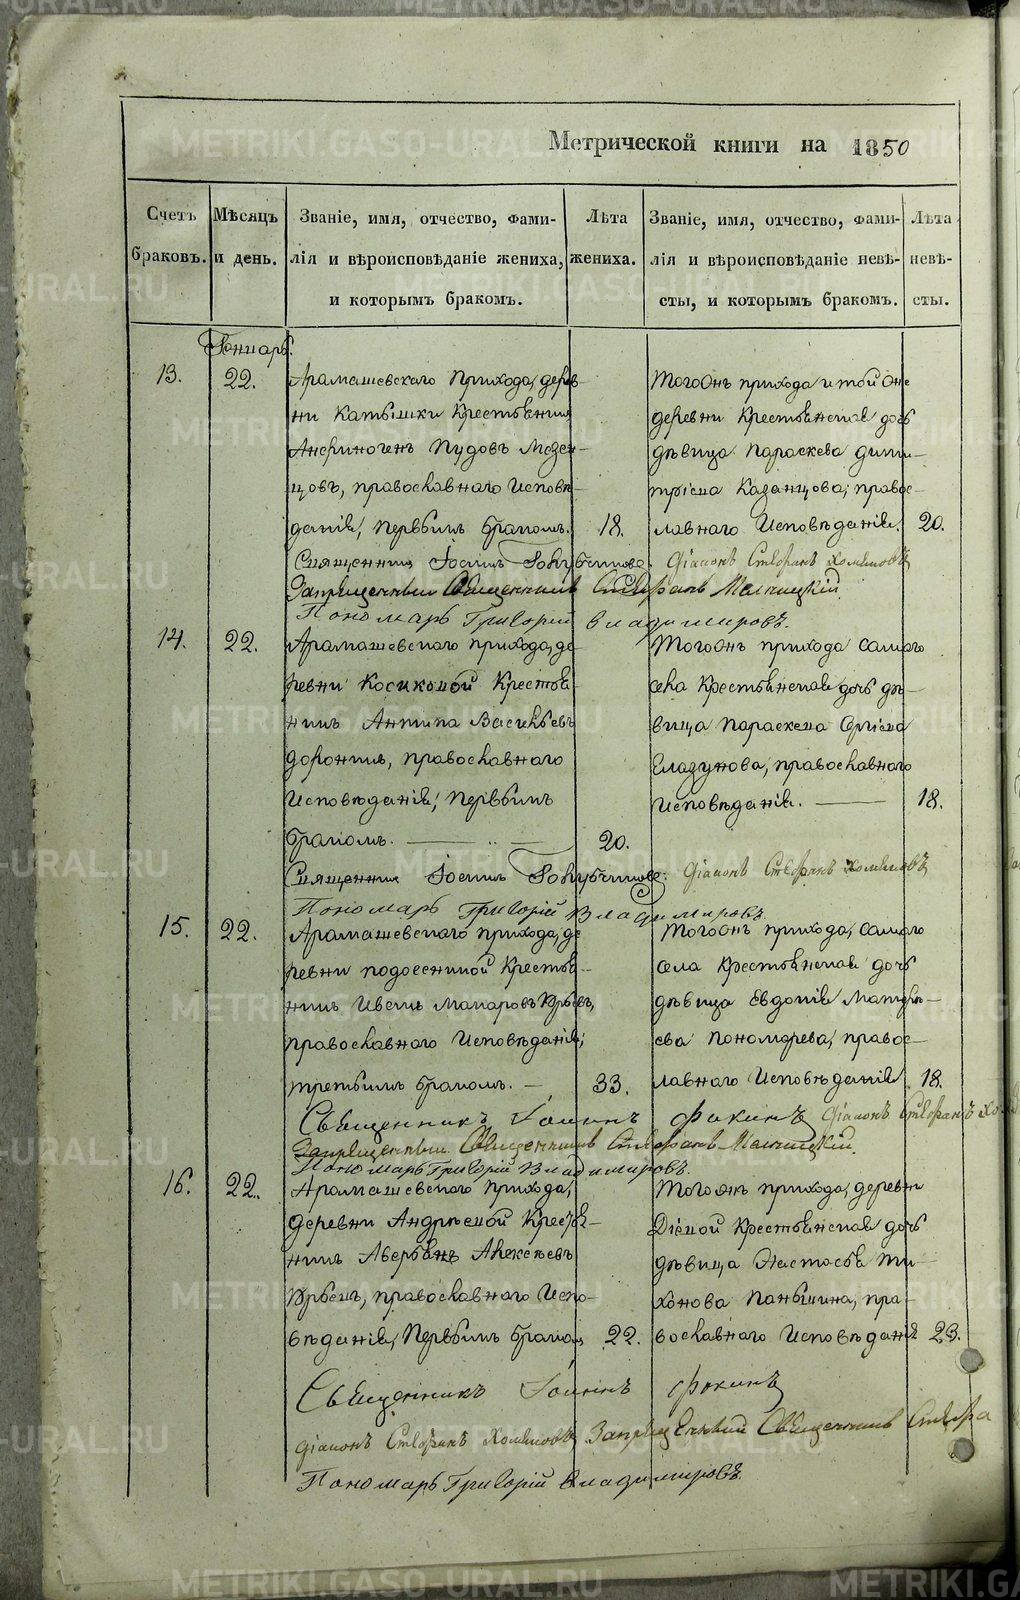 Метрической книги на 1850
Счетъ браковъ.
Мѣсяцъ и день.
Званіе, имя, отчество, фами-
лія и вѣроисповѣданіе жениха,
и которымъ бракомъ.
Лѣта жениха.
Званіе, имя, отчество, фами-
лія и вѣроисповѣданіе невѣ-
сты, и которымъ бракомъ.
Лѣта невѣ-
сты.
Генварь.
13.
22.
Арамашевскаго прихода, дерев-
ни Катышки Крестьянинъ
Анфиногенъ Пудовъ Мезен-
цовъ, православнаго Исповѣ-
данія, первымъ бракомъ.
18.
Тогожъ прихода и той же
деревни Крестьянская дочь
дѣвица Параскева Дими-
тріева Казанцова, право-
лавнаго Исповѣданія.
20.
Священникъ Іоаннъ діаконъ Стефанъ Хомяковъ
Запрещенный Священникъ Стефанъ
Пономарь Григорій Владимировъ.
14.
22.
Арамашевскаго прихода, де-
ревни Косиковой Крестья-
нинъ Антипа Васильевъ
Доронинъ, православнаго
Исповѣданія, первымъ
бракомъ.
20.
Тогожъ прихода самаго
села Крестьянская дочь дѣ-
вица Параскева Сергіева
Глазунова, православнаго
Исповѣданія.
18.
Священникъ Іоаннъ діаконъ Стефанъ Хомяковъ
Пономарь Григорій Владимировъ.
15.
22.
Арамашевскаго прихода, де-
ревни подосениной Крестья-
нинъ Ивань Макаровъ Юрьевъ,
православнаго Исповѣданія,
третьимъ бракомъ.
33.
Тогожъ прихода, самаго
села Крестьянская дочь
дѣвица Евдокія Матфѣ-
ева Пономарева, право-
лавнаго Исповѣданія
18.
Священникъ Іоаннъ Фокинъ діаконъ Стефанъ
Запрещенный Священникъ Стефанъ
Пономарь Григорій Владимировъ.
16.
22.
Арамашевскаго прихода,
деревни Андрѣевой Крестья-
нинъ Аверьянъ Алексѣевъ
Юрьевъ, православнаго Испо-
вѣданія, первымъ бракомъ
22.
Тогожъ прихода, деревни
Діевой Крестьянская дочь
дѣвица Анастасья Ти-
хонова Паньшина, пра-
вославнаго Исповѣданія
23.
Священникъ Іоаннъ Фокинъ
діаконъ Стефанъ Хомяковъ Запрещенный Священникъ Стефа
Пономарь Григорій Владимировъ
METRIKI.GASO-URAL.RU